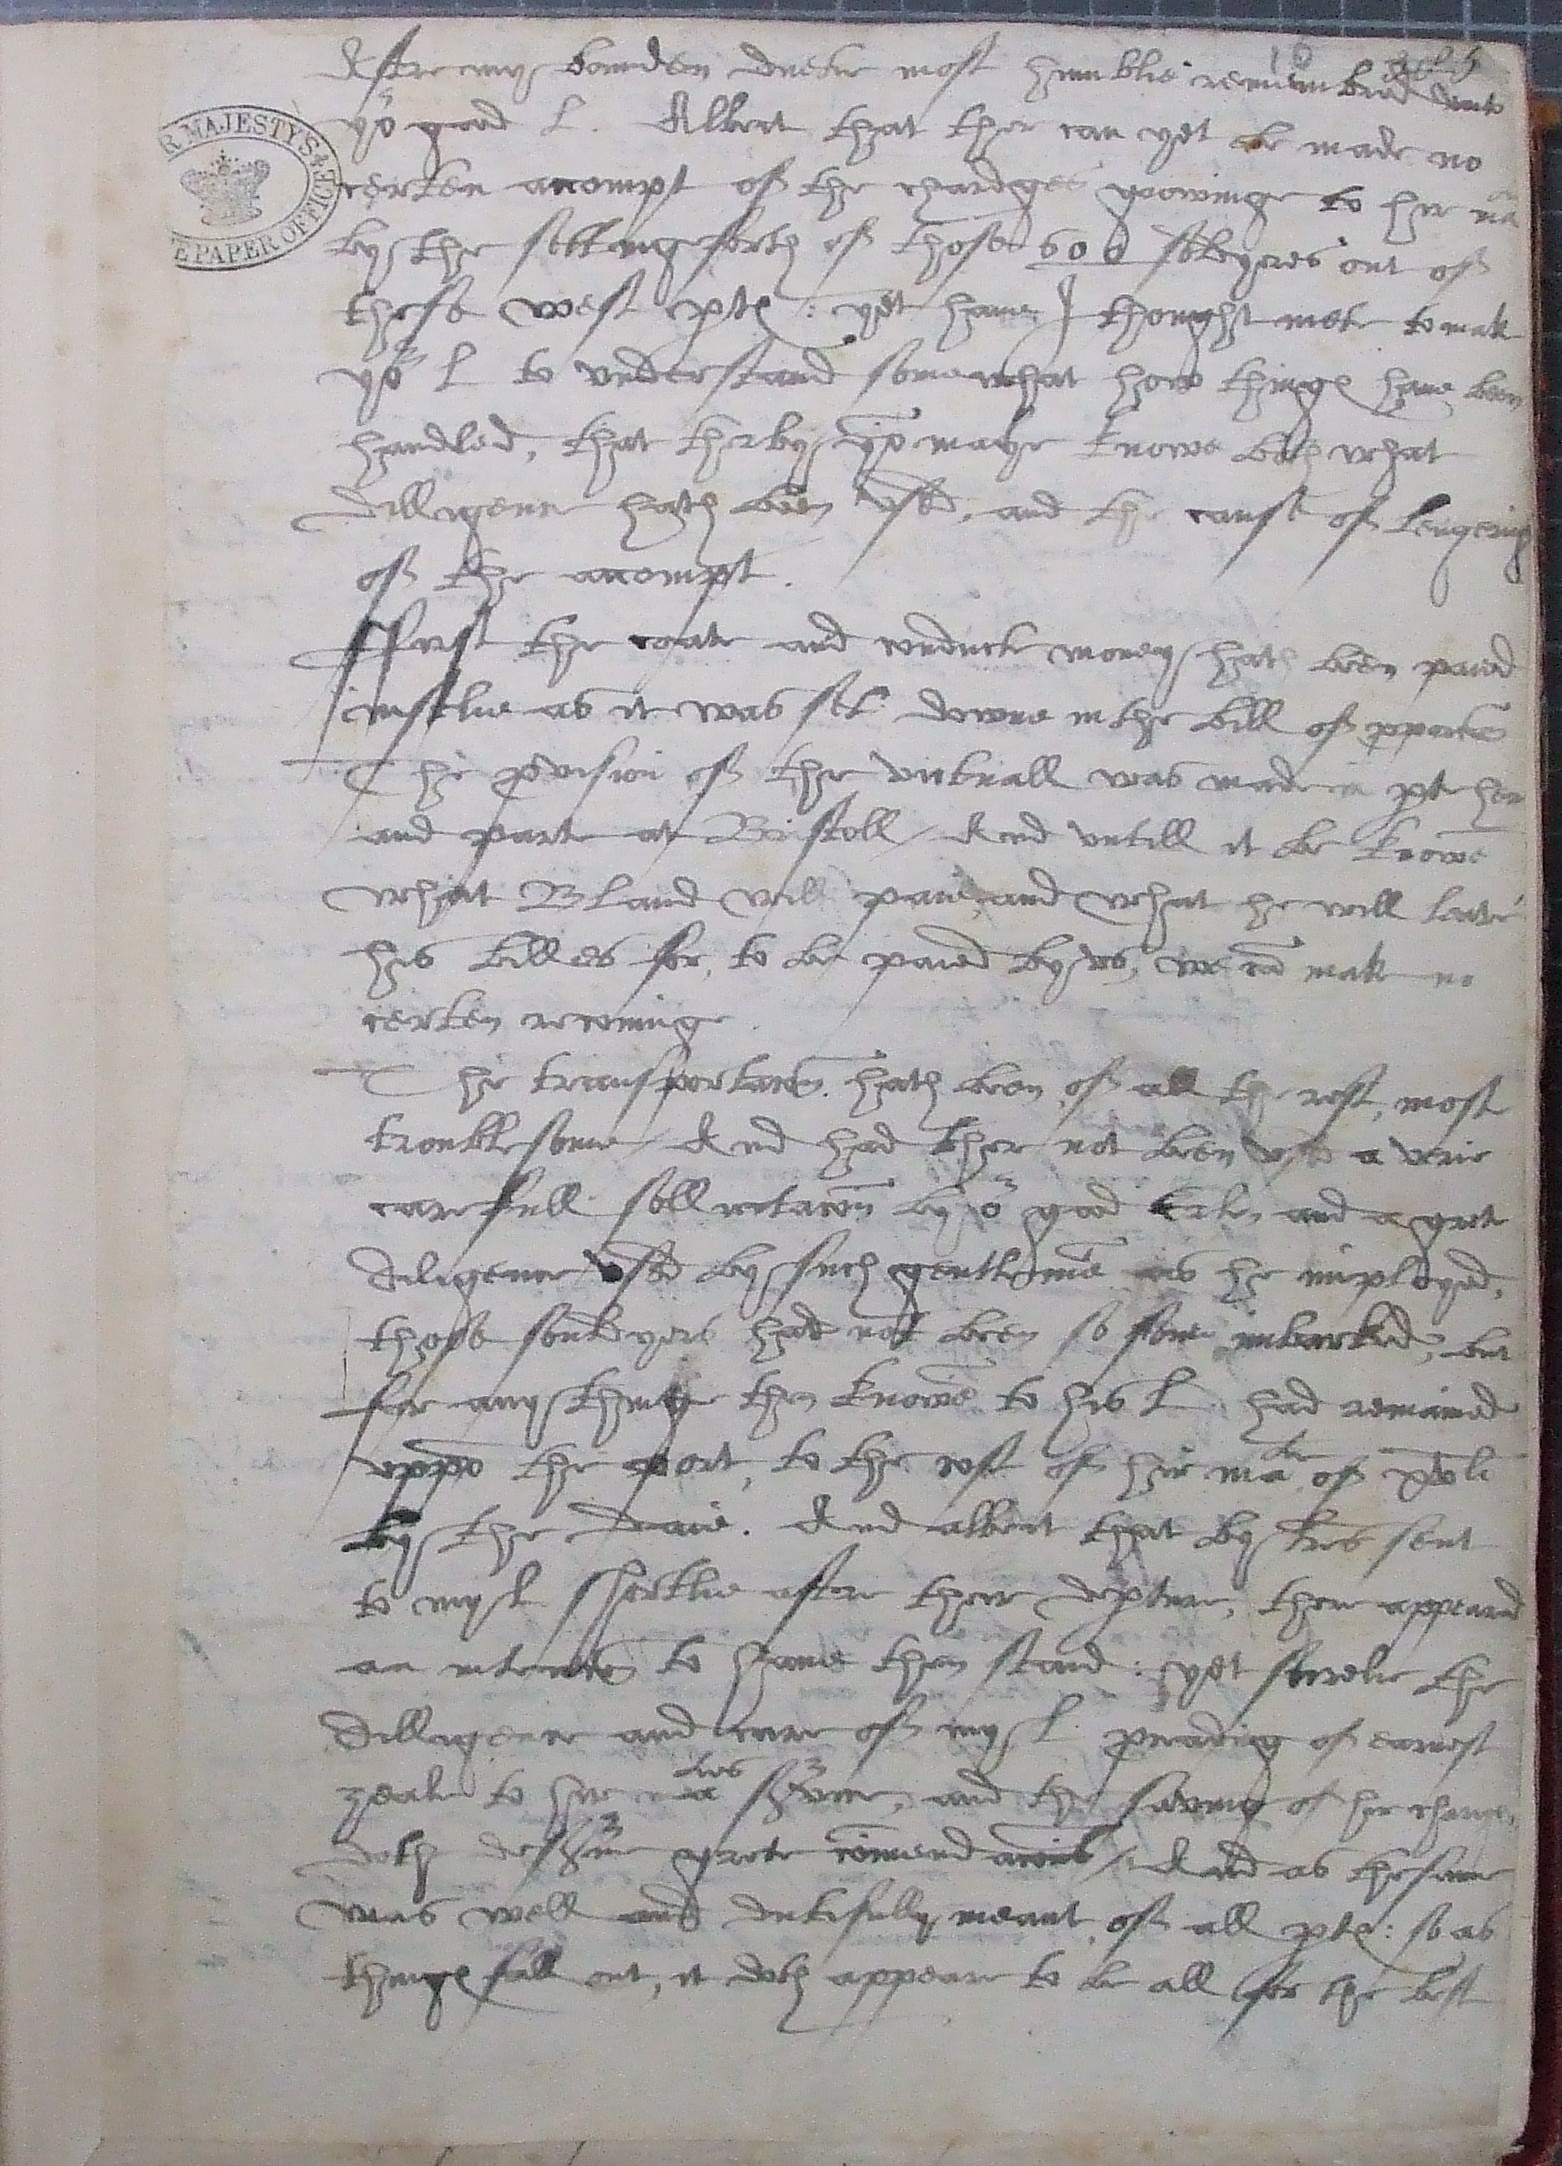 After my bounden duetie most humblie remembred unto
yor good L. Albeit that ther can yet be made no
certen accompt of the chardges growinge to her ma
by the settingeforth of those 600 soldyeres out of
these west ptes : yet have I thought mete to mak
yor L to understand somewhat how things have been
handled, that therby yo maye knowe both what
dilligence hath been used, and the cause of lengering
of the accompt.
Ffirst the coate and conducte money hath been paied
justlie as it was set downe in the bill of
The pvision of the victuall was made in pte her
and parte at Bristoll / And untill it be knowen
what Bland will paie, and what he will leave
his billes for, to be paied by us, we can make no
certen reconinge.
The transportacon hath been of all the rest, most
troublesome / And had ther not been used a verie
carefull sollicitacon by or good Erle, and a grete
diligence used by such gentlemen as he imployed,
those souldyers had not been so sone imbarked, but
for any thinge then knowen to his L had remained
uppon the port, to the cost of her matie of xvli
by the daie. And albeit that by lres sent
to my L shortlie after their depture, there appeared
an intencon to have then staied : yet surelie the
dilligence and care of my L. pceading of earnest
zeale to her maties service, and the saving of her charge,
doth deserve grete comendacons / And as the same
was well and dutifully meant of all ptes : so as
thinges fall out, it doth appeare to be all for the best
R MAJESTY'S
E PAPER OFFICE